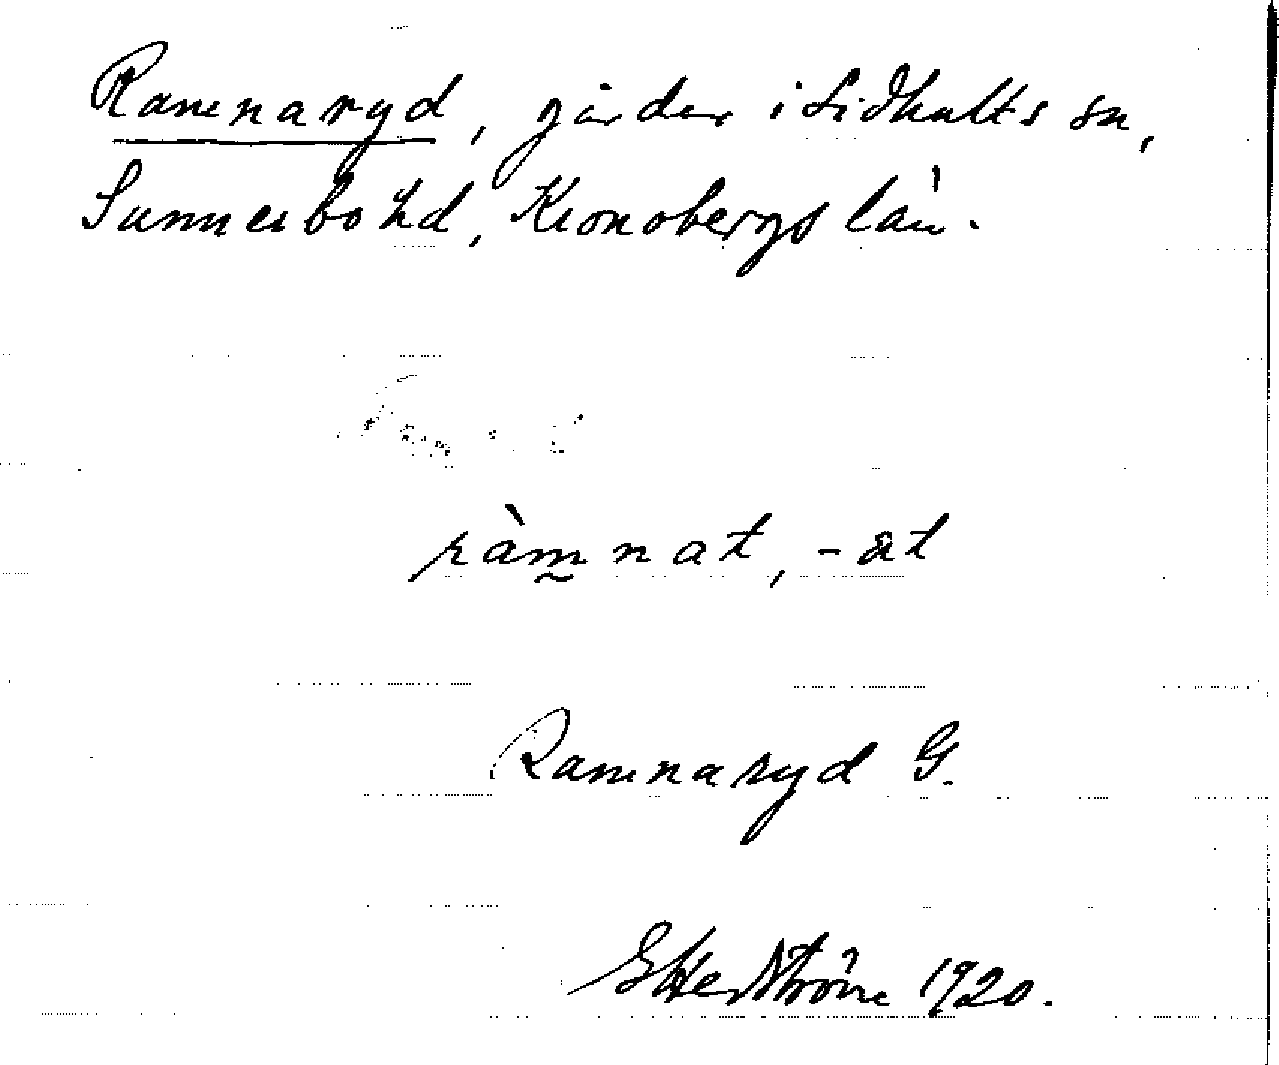 Ramnaryd, gårdar i Lidhults sn,
Sunnerbo hd, Kronobergs län.
ràm̰nat, -ət
Ramnaryd G.
1920.